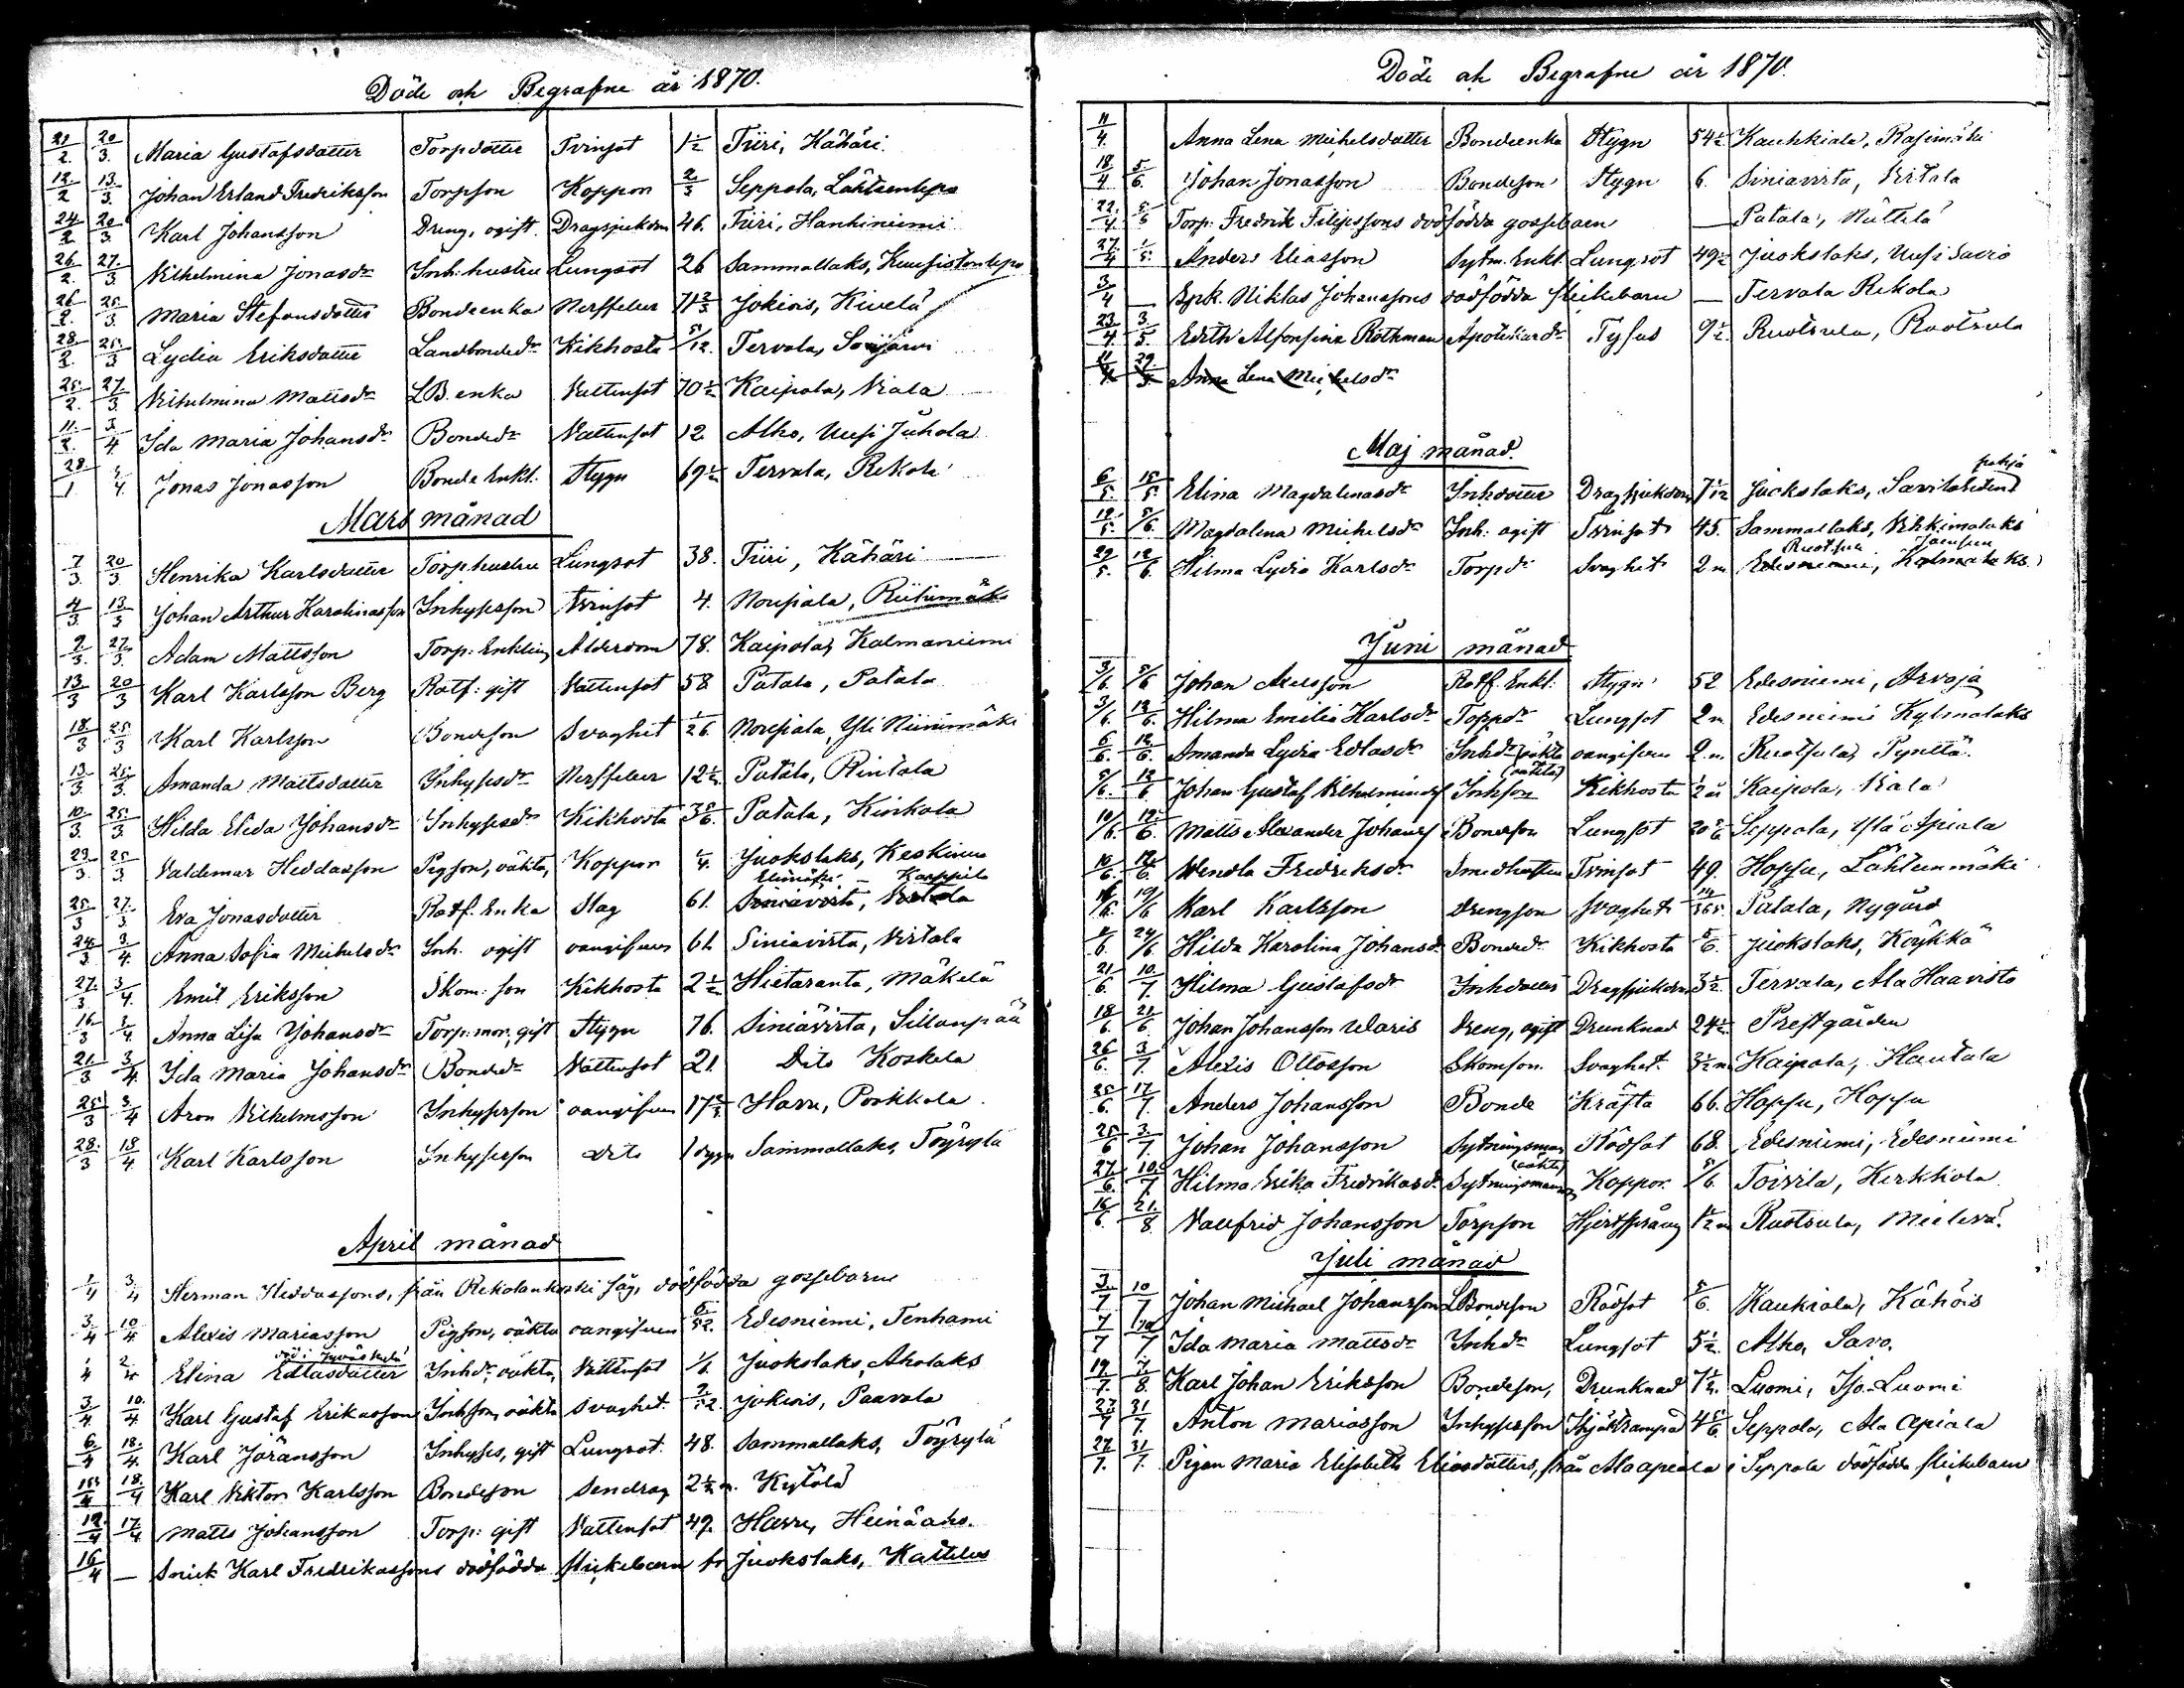 Döde och Begrafne år 1870.
21/2. 20/3. Maria Gustafsdotter Torpdotter Tvinsot 1½ Tiiri, Kähäri.
12/2 13/3. Johan Erland Fredriksson Torpson Koppor 2/3 Seppola, Lähteenlepo
24/2 20/3. Karl Johansson Dreng, ogift. Dragsjukdom 46. Tiiri, Hankiniemi
26/2. 27/3 Vilhelmina Jonasdr Inh: hustru Lungsot 26 Sammallaks,
26/2. 25/3. Maria Stefansdotter Bondeenka Nerffeber 71 2/3 Jokiois, Kivelä
28/2. 25/3 Lydia Eriksdotter Landbondedr Kikhosta 5/12. Tervala,
25/2. 27/3. Vilhelmina Mattsdr LB. enka Vattensot 70½ Kaipola, Viala
11/2. 3/4 Ida Maria Johansdr Bondedr Vattensot 12 Alho, Uusi Juhola
28/1 3/4. Jonas Jonasson Bonde Enkl. Stygn 69½ Tervala, Rekola
Mars månad
7/3. 20/3 Henrika Karlsdotter Torp.hustru Lungsot 38. Tiiri, Kähäri
4/3. 13/3 Johan Arthur Karolinasson Inhysesson Tvinsot 4. Noupiala, Riihimäki
2/3. 27/3. Adam Mattsson Torp: Enkling Ålderdom 78. Kaipola, Kalmaniemi
13/3 20/3 Karl Karlsson Berg Rotf: gift Vattensot 58 Patala, Patala
18/3 25/3 Karl Karlsson Bondeson Svaghet 1/26. Noupiala, Yli Niinimäki
13/3. 25/3. Amanda Mattsdotter Inhysesdr Nerffeber 12½ Patala, Rintala
10/3. 25/3 Hilda Elida Johansdr Inhysesdr Kikhosta 3 5/6. Patala, Kinkola
23/3. 25/3 Valdemar Heddasson Pigson, oäkta, Koppor ¼. Juokslaks, Keskinen
Elimäki - Karppila
25/3 27/3 Eva Jonasdotter Rotf. Enka Slag 61. Siniävirta, Virtala
24/3 3/4. Anna Sofia Michelsdr Inh. ogift oangifven 61. Siniävirta, Virtala
27/3 3/4. Emil Eriksson Skom: son Kikhosta 2½ Hietaranta, Mäkelä
16/3 3/4. Anna Lisa Johansdr Torp: mor, gift Stygn 76. Siniävirta, Sillanpää
21/3 3/4. Ida Maria Johansdr Bondedr Vattensot 21. Dito Koskela
25/3 3/4 Aron Vilhelmsson Inhysesson oangifven 17 2/3 Havu, Poikkola
28/3 18/4 Karl Karlsson Inhysesson dito 1 dygn Sammallaks, Töyrylä
April månad
1/4 3/4 Herman Heddassons, från Rekolankoski såg, dödfödda gossebarn
3/4 10/4 Alexis Mariasson Pigson, oäkta oangifven 6/52. Edesniemi, Tenhami
död i Jyväskylä
1/4 2/4 Elina Edlasdotter Inhdr, oäkta, Vattensot 1/6. Juokslaks, Aholaks
3/4 10/4. Karl Gustaf Erikasson Inhson, oäkta svaghet 2/52. Jokiois, Paavola
6/4 18/4. Karl Jöransson Inhyses, gift Lungsot 48. Sammallaks, Töyrylä
15/4 18/4 Karl Viktor Karlsson Bondeson Sendrag 2½ m. Kytölä
12/4 17/4 Matts Johansson Torp: gift Vattensot 49. Havu, Heinäaho.
16/4 — Karl Fredrikassons dödfödda flickebarn fr Juokslaks, Kattelus
Döde och Begrafne år 1870.
11/4. Anna Lena Michelsdotter Bondeenka Stygn 54½ Kauhkiala, Rasimäki
18/4 5/6. Johan Jonasson Bondeson Stygn 6. Siniävirta, Virtala
22/4 5/5 Torp: Fredrik Filipssons dödfödda gossebarn — Patala, Nättilä
27/4 1/5. Anders Eliasson Sytm. Enkl Lungsot 49½ Juokslaks, Uusi Savio
3/4 — Niklas Johanssons dödfödda flickebarn — Tervala Rekola
23/4 3/5. Edith Alfonsina Rothman Apotekaredr Tyfus 9½ Ruotsula, Ruotsula
11/4 29/5. Anna Lena Michelsdr
Maj månad.
pohja
6/5. 15/5. Elina Magdalenasdr Inhdotter Dragsjukdom 7 1/12 Juokslaks, Savilahden
12/5. 5/6. Magdalena Michelsdr Inh: ogift Tvinsot 45. Sammallaks, Vihkimalaks
Ruotsula
29/5. 12/6. Hilma Lydia Karlsdr Torpdr Svaghet 2 m Edesniemi, Kylmalaks
Juni månad
3/6. 5/6 Johan Axelsson Rotf. Enkl: Stygn 52 Edesniemi, Arvaja
3/6. 12/6. Hilma Emilia Karlsdr Torpdr Lungsot 2 m Edesniemi Kylmalaks
6/6. 12/6. Amanda Lydia Edlasdr Inhdr oäkta oangifven 2 m. Ruotsula, Pynttä
(oäkta)
5/6. 12/6 Johan Gustaf Vilhelminas Inhson Kikhosta ½ år Kaipola, Viala
10/6. 12/6. Matts Alexander Johans Bondeson Lungsot 20 5/6 Seppola, Ylä Apiala
10/6. 12/6. Wendla Fredriksdr Smedhustru Tvinsot 49. Hopsu, Lähteenmäki
16/6. 19/6 Karl Karlsson Drengson svaghet 14/365 Patala, Nygård
4/6 24/6. Hilda Karolina Johansdr Bondedr Kikhosta 5/6. Juokslaks, Köykkä
21/6. 10/7. Hilma Gustafsdr Inhdotter Dragsjukdom 3½ Tervala, Ala Haavisto
18/6. 21/6 Johan Johansson Waris Dreng, ogift Drunknad 24½ Prestgården
26/6. 3/7. Alexis Ottosson Skomson. Svaghet. 3½ m Kaipola, Hautala
25/6. 17/7. Anders Johansson Bonde Kräfta 66. Hopsu, Hopsu
25/6 3/7. Johan Johansson Sytningsman Rödsot 68. Edesniemi, Edesniemi
(oäkta)
27/6. 10/7 Hilma Erika Fredrikasdr Sytningsmans Koppor. 5/6 Toivila, Kirkkola
16/6. 21/8. Valfrid Johansson Torpson Hjertsprång 1½ m Ruotsula, Mielevä
Juli månad
3/7 10/7 Johan Michael Johansson LBondeson Rödsot 5/6. Kaukiala, Kähöis
7/7 10/7. Ida Maria Mattsdr Inhdr Lungsot 5½. Alho, Savo.
19/7. 7/8. Karl Johan Eriksson Bondeson, Drunknad 7½. Luomi, Iso-Luomi
27/7 31/7. Anton Mariasson Inhysesson 4 5/6. Seppola, Ala Apiala
27/7. 31/7. Pigan Maria Elisabeth Eliasdotters, från Ala apiala i Seppola dödfödda flickebarn